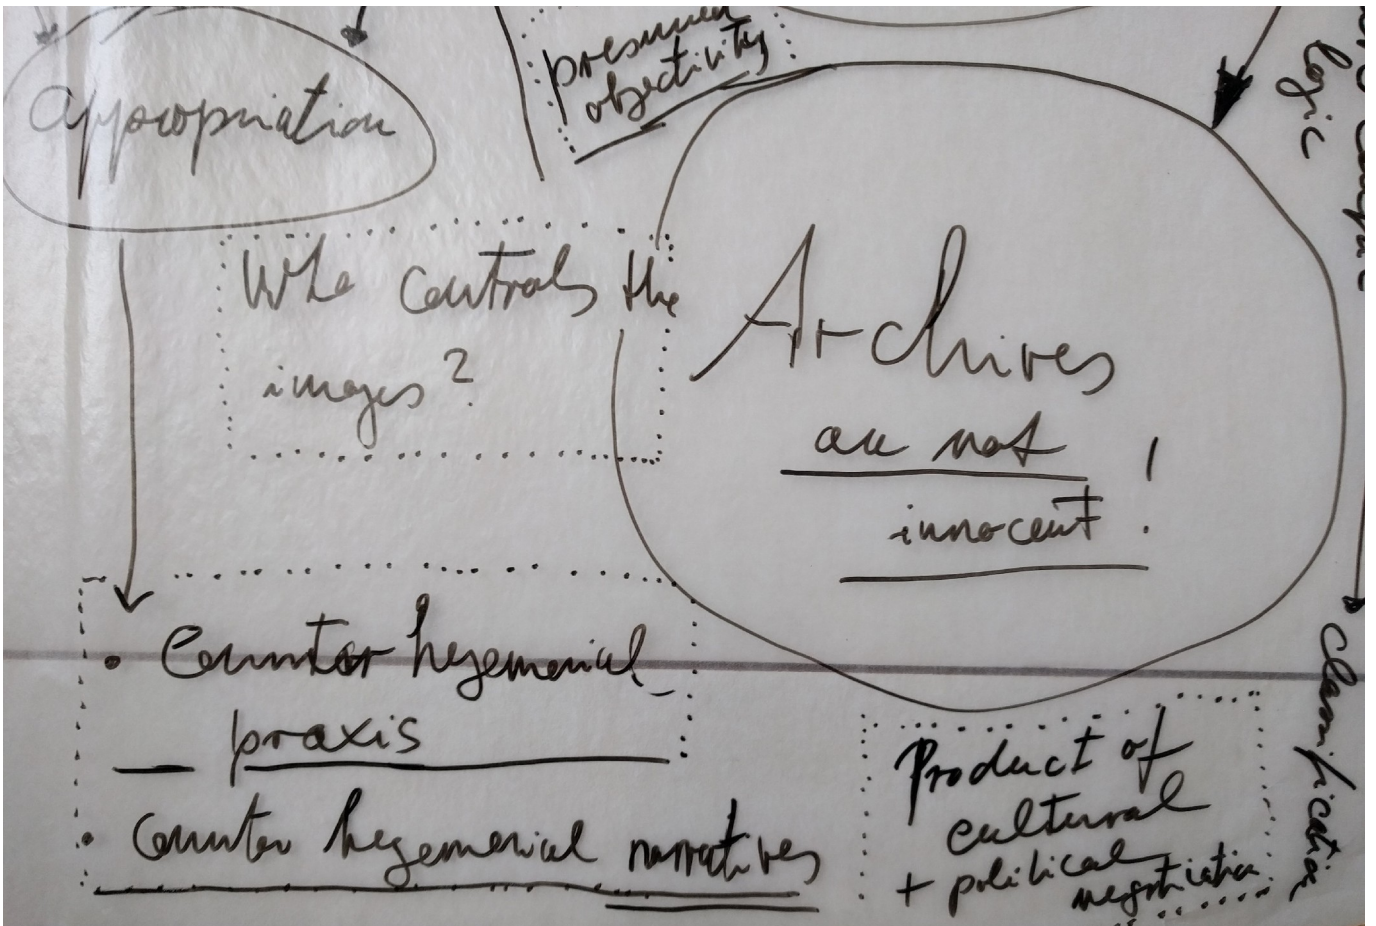 appropriation
presumed
objectivity
logic
Who controls the
images?
Archives
are not
innocent!
• Counter hegemonial
praxis
• Counter hegemonial narratives
Product of
cultural
+ political
negotiation
classification